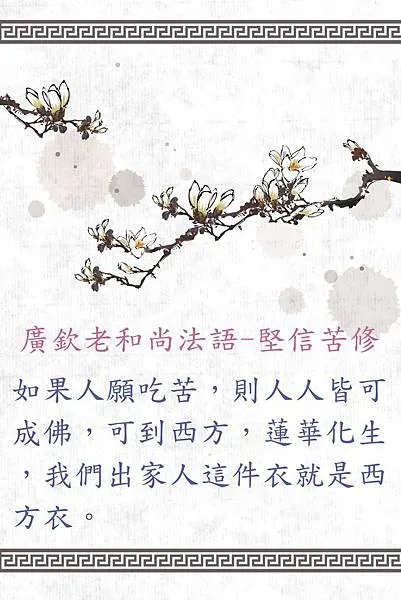 廣欽老和尚法語-堅信苦修
如果人願吃苦，則人人皆可
成佛，可到西方，蓮華化生
，我們出家人這件衣就是西
方衣。